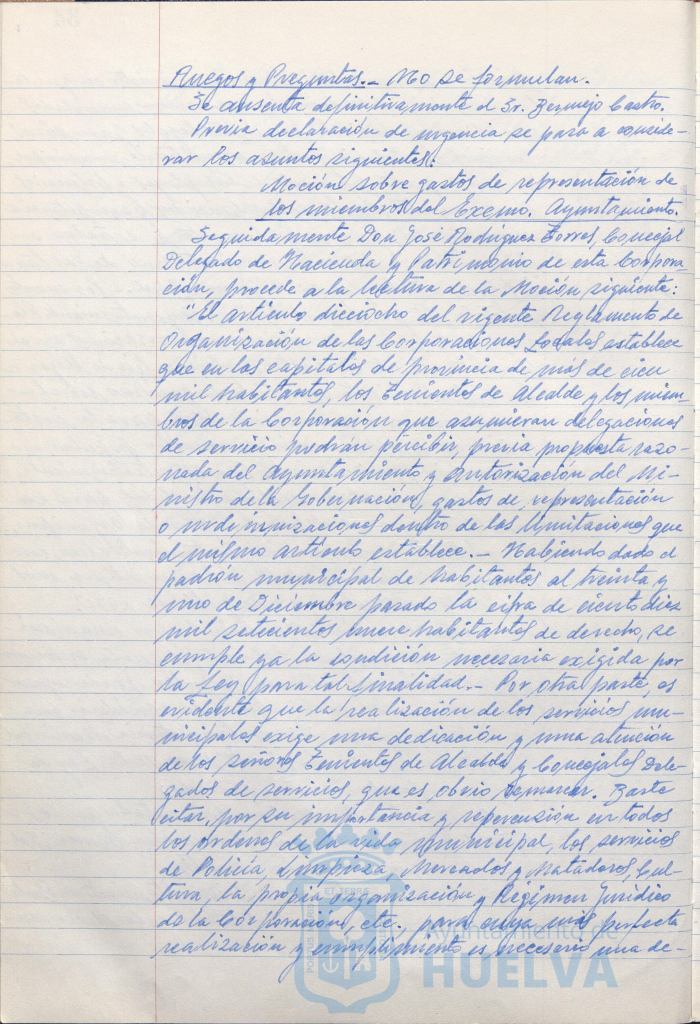 Ruegos y Preguntas.- No se formulan.
Se ausenta definitivamente el Sr. Bermejo Castro.
Previa declaración de urgencia se pasa a conside-
rar los asuntos siguientes:
Moción sobre gastos de representación de
los miembros del Excmo. Ayuntamiento.
Seguidamente Don José Rodríguez Torres, Concejal
Delegado de Hacienda y Patrimonio de esta Corpora-
ción, procede a la lectura de la Moción siguiente:
"El artículo dieciocho del vigente Reglamento de
Organización de las Corporaciones Locales establece
que en las capitales de provincia de más de cien
mil habitantes, los Tenientes de Alcalde y los miem-
bros de la Corporación que asumieran delegaciones
de servicio podrán percibir, previa propuesta razo-
nada del Ayuntamiento y autorización del Mi-
nistro de la Gobernación, gastos de representación
o indemnizaciones dentro de las limitaciones que
el mismo artículo establece.- Habiendo dado el
padrón municipal de habitantes al treinta y
uno de Diciembre pasado la cifra de ciento diez
mil setecientos nueve habitantes de derecho, se
cumple ya la condición necesaria exigida por
la Ley para tal finalidad.- Por otra parte, es
evidente que la realización de los servicios mu-
nicipales exige una dedicación y una atención
de los señores Tenientes de Alcalde y Concejales Dele-
gados de servicios, que es obvio remarcar. Baste
citar, por su importancia y repercusión en todos
los órdenes de la vida municipal, los servicios
de Policía, Limpieza, Mercados y Mataderos, Cul-
tura, la propia organización y Régimen Jurídico
de la Corporación, etc. para cuya más perfecta
realización y cumplimiento es necesario una de-
Ayuntamiento de
HUELVA